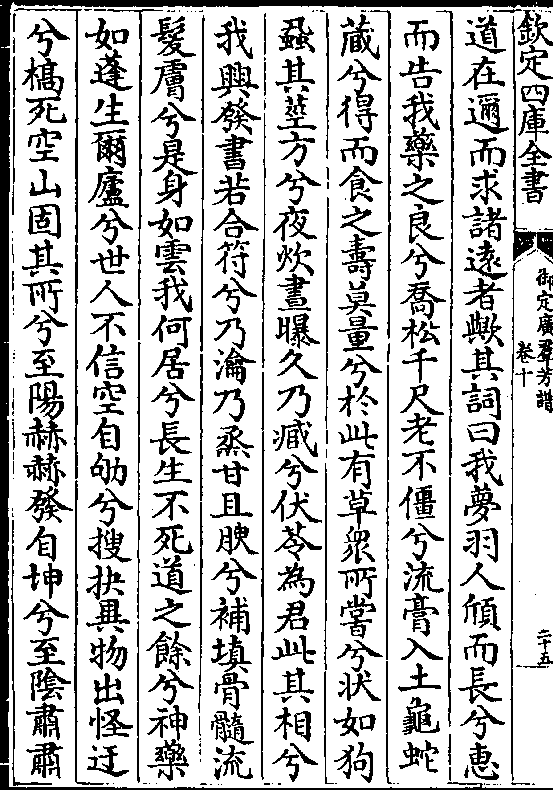 欽定四庫全書
御定廣羣芳譜
卷十
二十五
道在邇而求諸遠者歟其詞曰我夢羽人頎而長兮惠
而告我藥之良兮喬松千尺老不僵兮流膏入土龜蛇
藏兮得而食之壽莫量兮於此有草衆所嘗兮狀如狗
蝨其莖方兮夜炊晝曝久乃臧兮伏苓為君此其相兮
我興發書若合符兮乃瀹乃烝甘且腴兮補填骨髓流
髮膚兮是身如雲我何居兮長生不死道之餘兮神藥
如蓬生爾廬兮世人不信空自劬兮搜抉異物出怪迂
兮槁死空山固其所兮至陽赫赫發自坤兮至陰肅肅